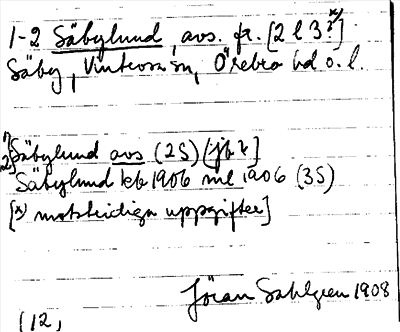 1-2 Säbylund, avs. fr. [2 l 3 x)]
Säby, Vintrosa sn, Örebro hd o. l.
1) Säbylund avs (2S) [jb x]
2) Säbylund kb 1906 ml 1906 (3S)
[x) motstridiga uppgifter]
Jöran Sahlgren 1908
(12,